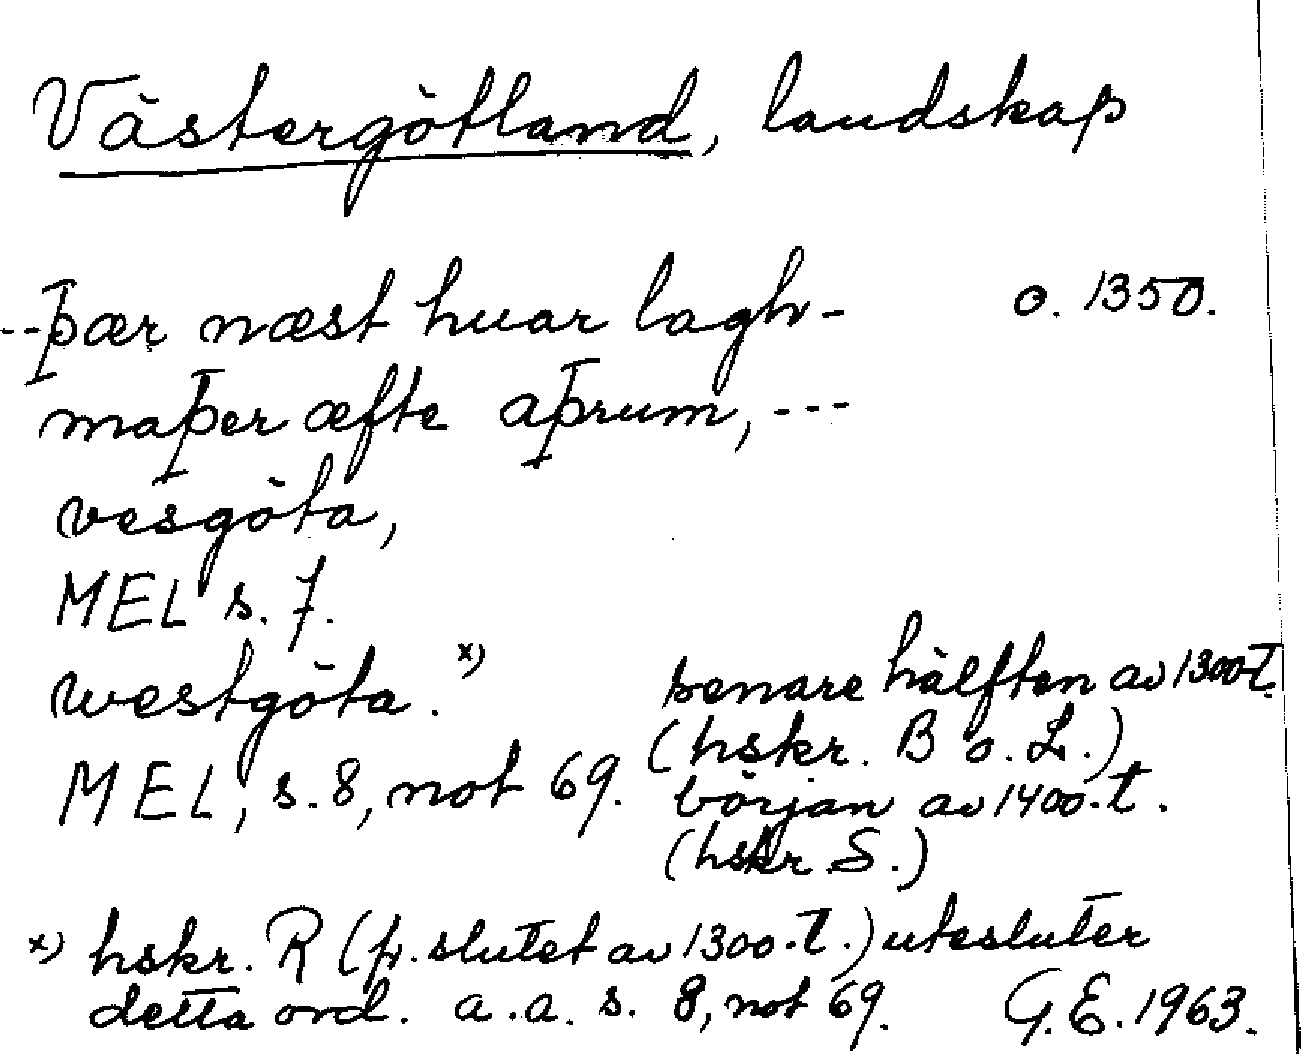 Västergötland, landskap
--þær næst huar lagh- o. 1350.
maþer æfte aþrum, ---
vesgöta,
MEL s. 7.
westgöta. x) senare hälften av 1300-t.
(hskr. B o. L.)
MEL, s. 8, not 69. början av 1400-t.
(hskr S.)
x) hskr. R (fr. slutet av 1300-t.) utesluter
detta ord. a.a. s. 8, not 69. G.E. 1963.